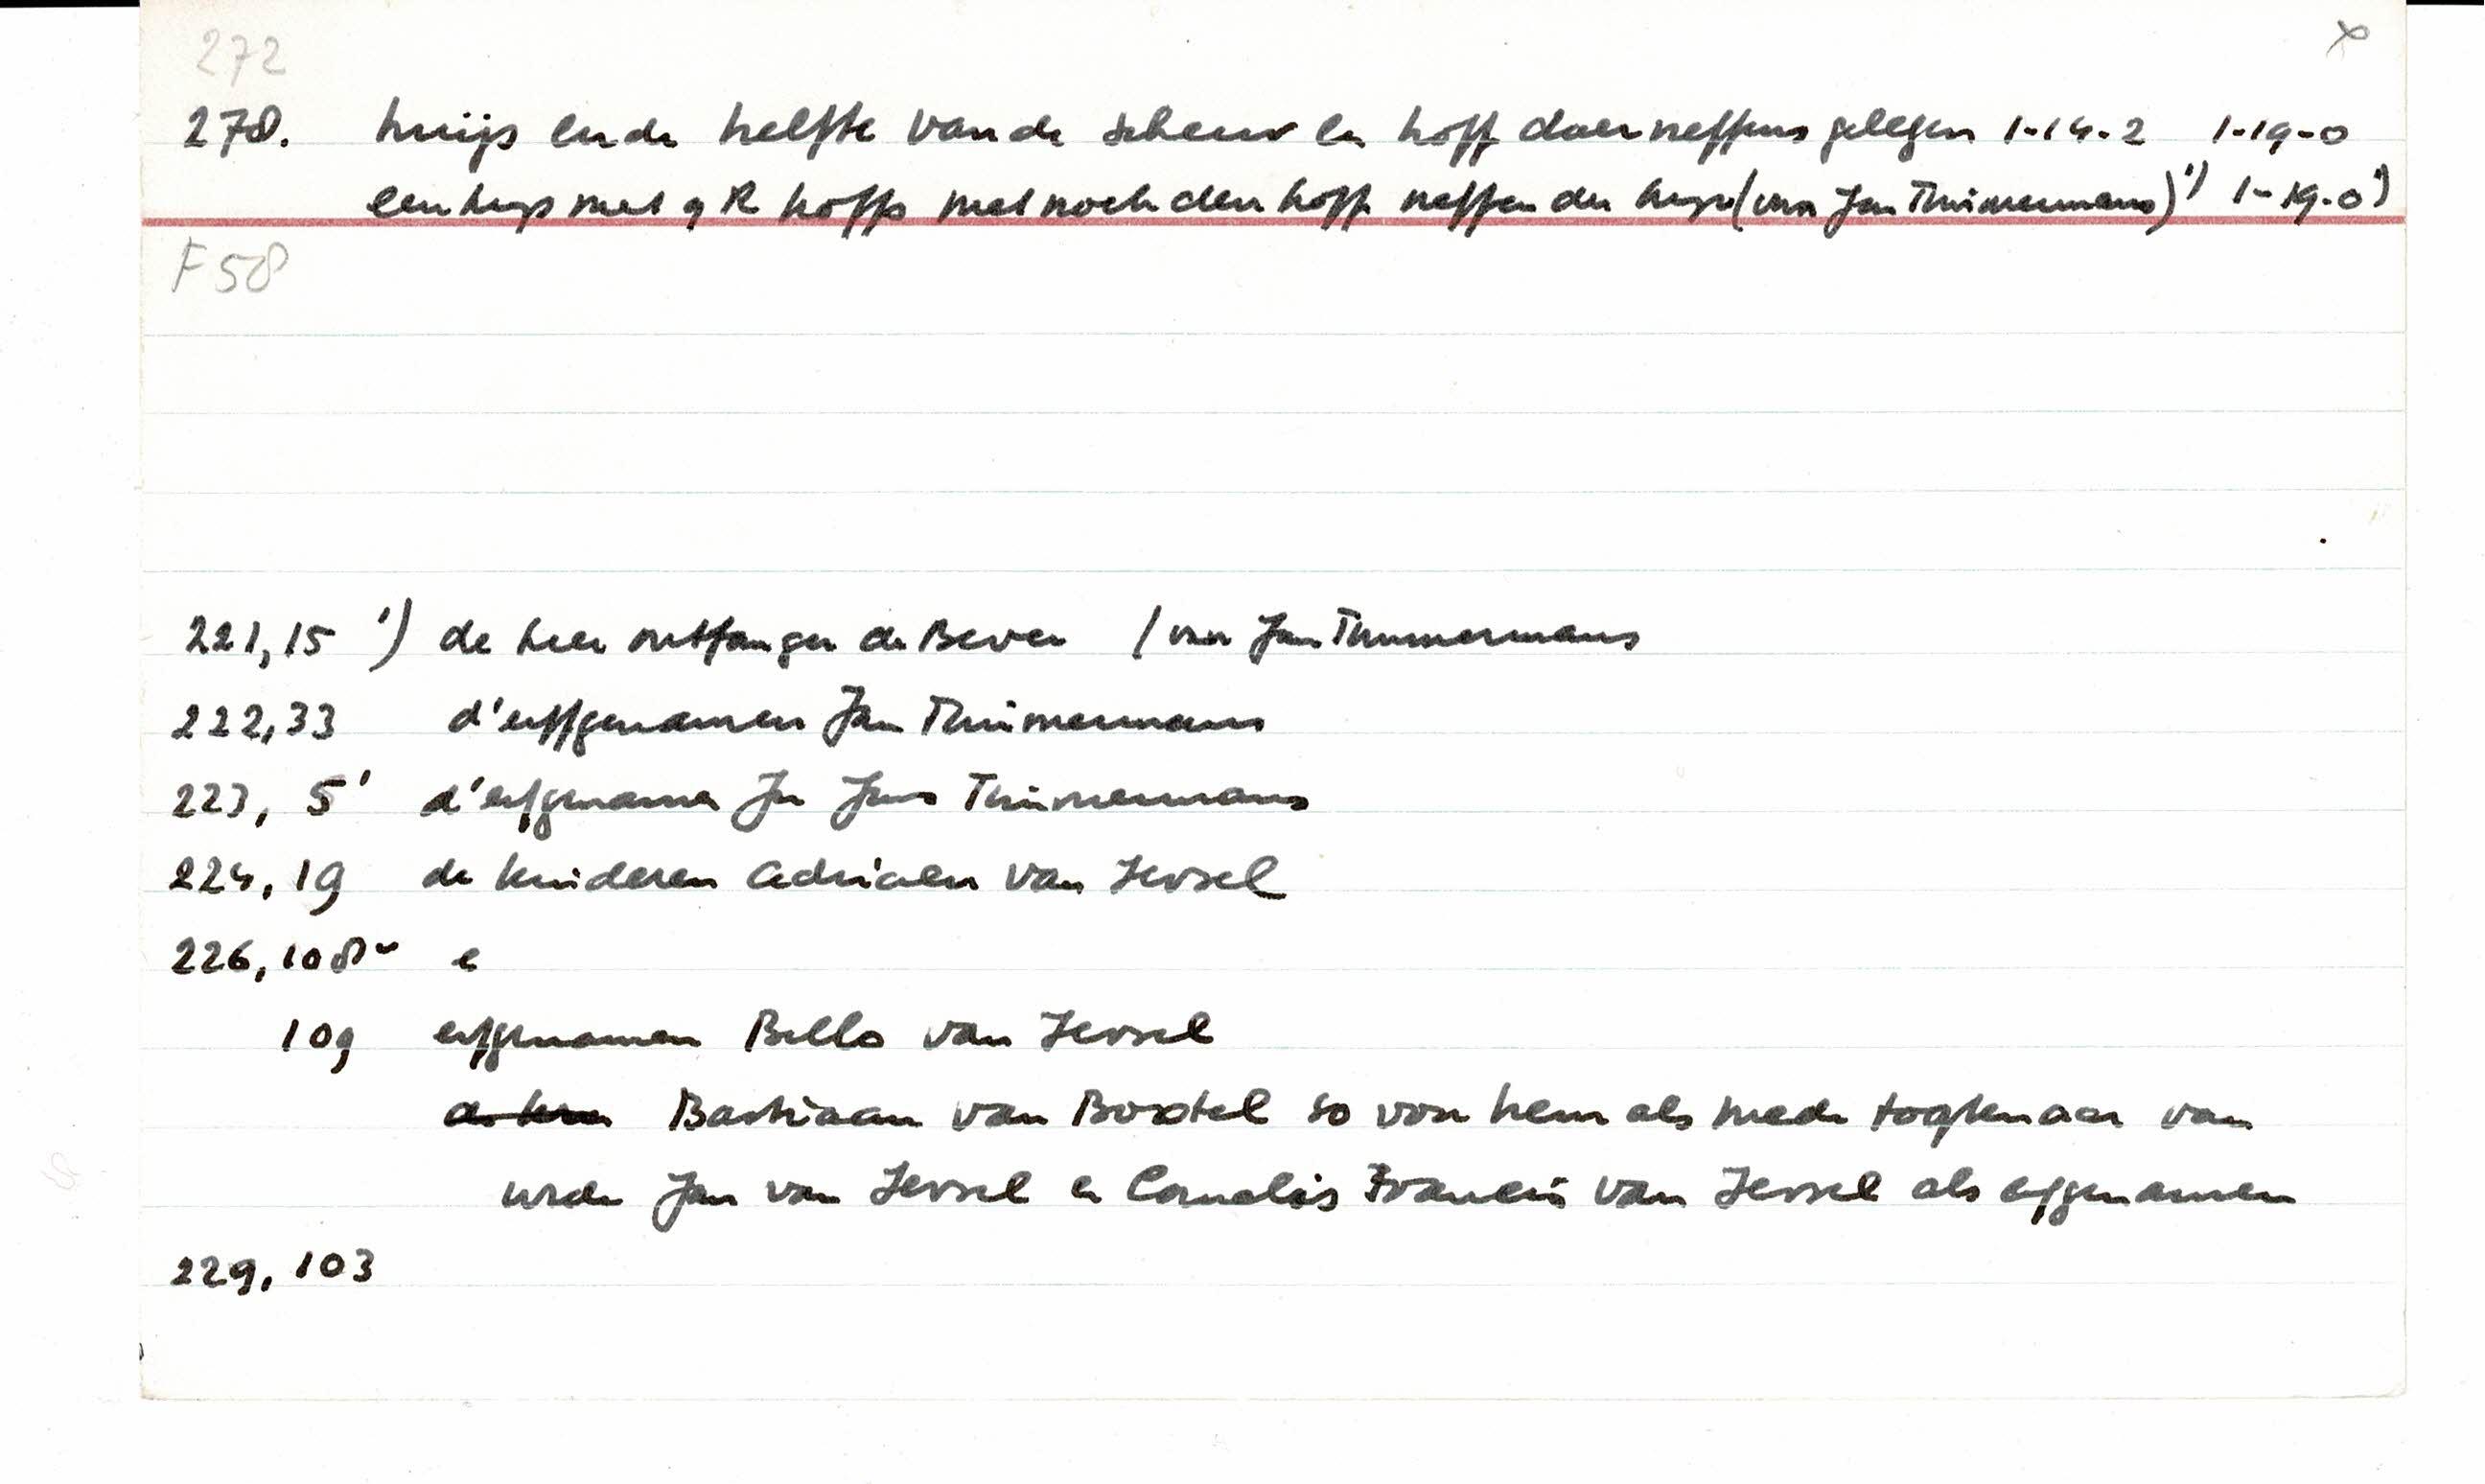 272 x
278. huijs ende helfte vande scheur en hoff daerneffens gelegen 1-14-2 1-19-0
een huys met 9 R hoffs met noch den hoff neffen den huyse (von Jan Timmermans)') 1-19-0')
F58
221,15 ') de heer ontfanger de Bever / von Jan Timmermans
222,33 d'erffgenamen Jan Timmermans
223, 5' d'erfgename Jan Timmermans
224, 19 de kinderen Adriaen van Iersel
226, 108v e
109 erfgenamen Bello van Iersel
Bastiaan van Boxtel so voor hem als mede togtenaar van
wede Jan van Iersel en Cornelis Francis van Iersel als erfgenamen
229, 103